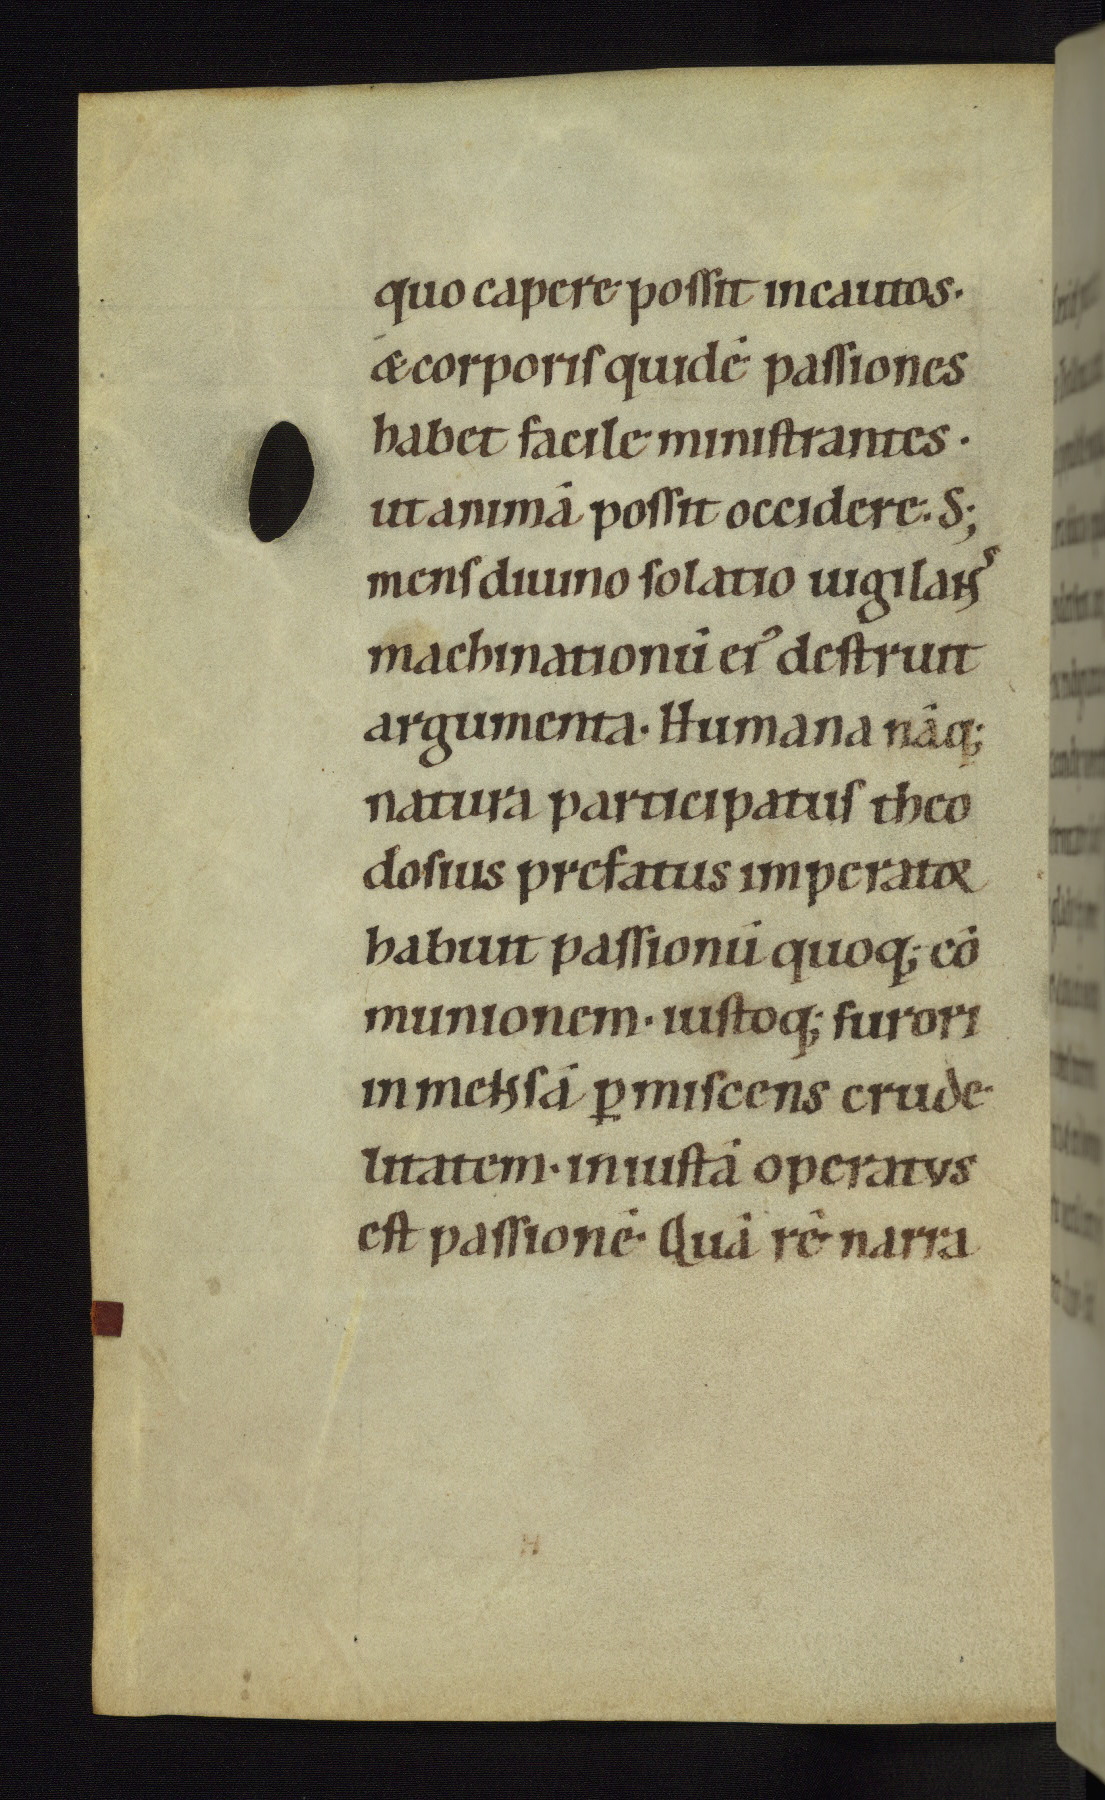 quo capere possit incautos·
& corporis quidē passiones
habet facile ministrantes·
ut animā possit occidere· S;
mens diuino solatio uigilans
machinationū ei᾽ destruit
argumenta· Humana nāq;
natura participatus theo
dosius prefatus imperator
habuit passionū quoq; cō
munionem· iustoq; furori
inmensā ꝑmiscens crude
litatem· iniustā operatus
est passionē· Quā rē narra